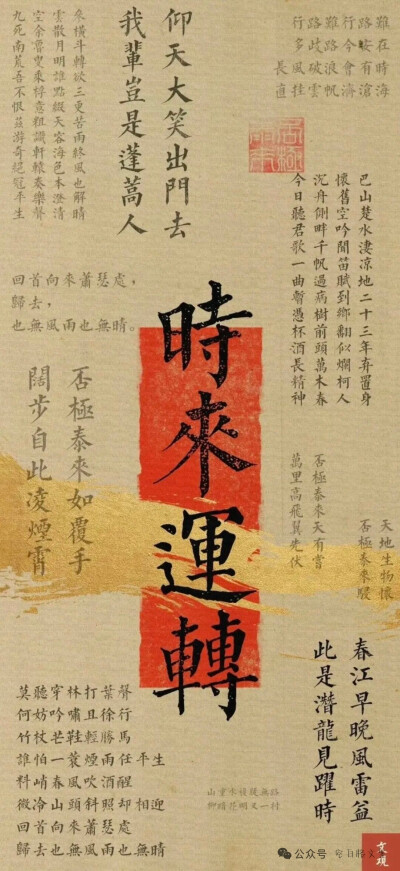 行路難行路難
多歧路今安在
長風破浪會有時
直挂雲帆濟滄海
仰天大笑出門去
我輩豈是蓬蒿人
來橫斗轉欲三更苦雨終風也解晴
雲散月明誰點綴天容海色本澄清
空余魯叟乘桴意粗識軒轅奏樂聲
九死南荒吾不恨茲游奇絕冠平生
巴山楚水淒涼地二十三年弃置身
懷舊空吟聞笛賦到鄉翻似爛柯人
沉舟側畔千帆過病樹前頭萬木春
今日聽君歌一曲暫憑杯酒長精神
回首向來蕭瑟處，
歸去，
也無風雨也無晴。
時來運轉
否極泰來如覆手
闊步自此凌煙霄
否極泰來天有
萬里高飛翼先伏
天地生物懷
否極泰來暖
春江早晚風雷益
此是潛龍見躍時
莫聽穿林打葉聲
何妨吟嘯且徐行
竹杖芒鞋輕勝馬
誰怕一蓑煙雨任平生
料峭春風吹酒醒
微冷山頭斜照卻相迎
回首向來蕭瑟處
歸去也無風雨也無晴
山重水複疑無路
柳暗花明又一村
公众号